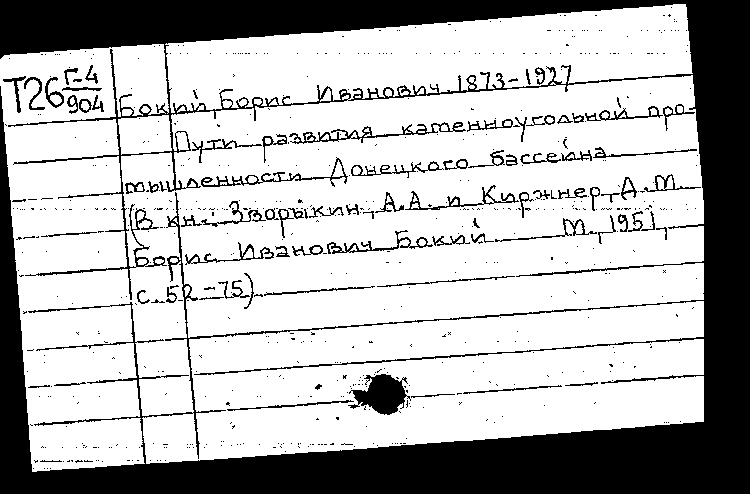 Т26 Г-4
904
Бокий, Борис Иванович. 1873-1927
Пути развития каменноугольной про-
мышленности Донецкого бассейна.
(В кн.: Зворыкин, А.А. и Киржнер, Д.М.
Борис Иванович Бокий. М., 1951,
с. 52-75)